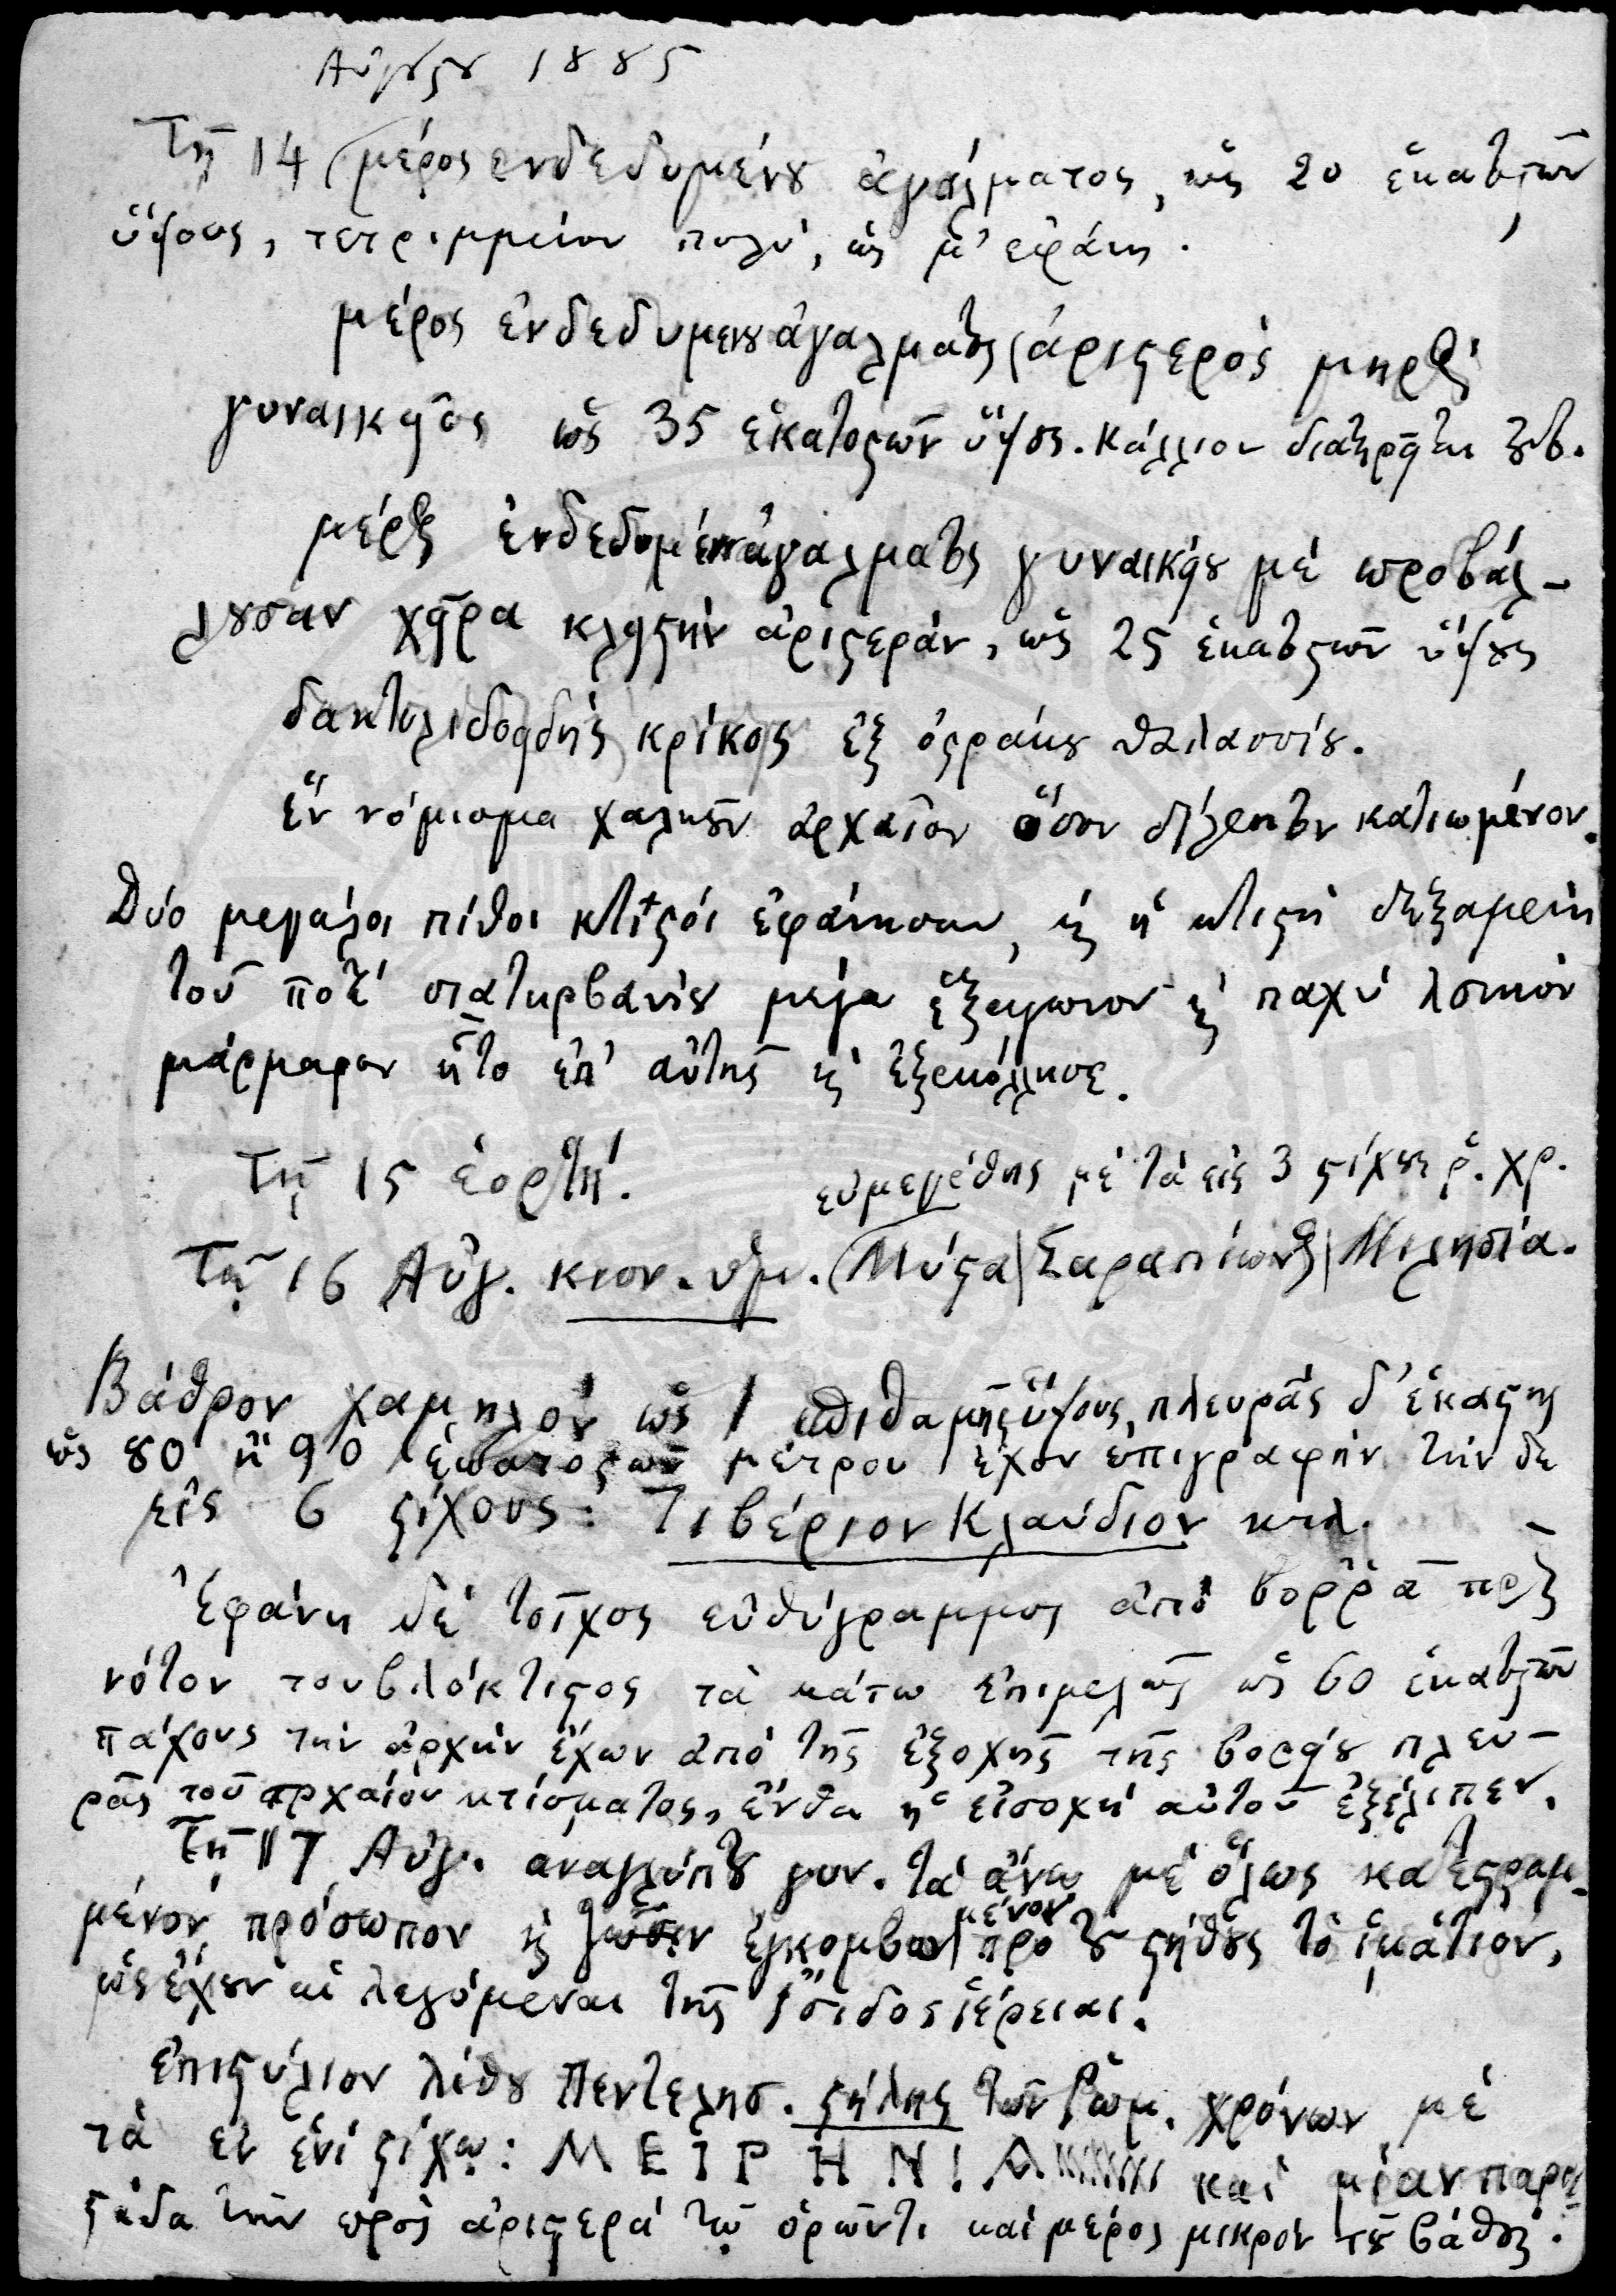 Αὐγούστου 1885
Τῇ 14 (μέρος ἐνδεδυμένου ἀγάλματος, ὡς 20 ἑκατοστῶν
ὕψους, τετριμμένον πολύ, ὡς μ' ἐφάνη.
μέρος ἐνδεδυμένου ἀγάλματος (ἀριστερὸς μηρὸς)
γυναικεῖος ὡς 35 ἑκατοστῶν ὕψος. κάλλιον διατηρεῖται
μέρος ἐνδεδυμένου ἀγάλματος γυναικείου μὲ προβάλ-
λουσαν χεῖρα κλειστὴν ἀριστεράν, ὡς 25 ἑκατοστῶν ὕψους
δακτυλιδοειδὴς κρίκος ἐξ ὀστράκου θαλασσίου.
ἓν νόμισμα χαλκοῦν ἀρχαῖον ὅσον δίλεπτον κατιωμένον.
Δύο μεγάλοι πίθοι κτιστοὶ ἐφάνησαν, καὶ ἡ κτιστὴ δεξαμενὴ
τοῦ ποτὲ σιατηρβανίου μέγα ἑξάγωνον καὶ παχὺ λευκὸν
μάρμαρον ἦτο ἐπ' αὐτῆς καὶ ἐξεκόλλησε.
Τῇ 15 ἑορτή.
εὐμεγέθης μὲ τὰ εἰς 3 στίχους ῥ. χρ.
Τῇ 16 Αὐγ. κιον. ἡμ. (Μύστα | Σαραπίωνος | Μιλησία.
Βάθρον χαμηλὸν ὡς 1 σπιθαμῆς ὕψους, πλευρᾶς δ' ἑκάστης
ὡς 80 ἢ 90 ἑκατοστῶν μέτρου ἔχον ἐπιγραφὴν τήνδε
εἰς 6 στίχους: Τιβέριον Κλαύδιον κτλ.
Ἐφάνη δὲ τοῖχος εὐθύγραμμος ἀπὸ βορρᾶ πρὸς
νότον τουβλόκτιστος τὰ κάτω ἐπιμελῶς ὡς 60 ἑκατοστῶν
πάχους τὴν ἀρχὴν ἔχων ἀπὸ τῆς ἐξοχῆς τῆς βορείου πλευ-
ρᾶς τοῦ ἀρχαίου κτίσματος, ἔνθα ἡ εἰσοχὴ αὐτοῦ ἐξέλιπεν.
Τῇ 17 Αὐγ. ἀναγλύπτου γυν. τὰ ἄνω μὲ ὅλως κατεστραμ-
μένον πρόσωπον καὶ ἐγκομβωμένον πρὸ τοῦ στήθους τὸ ἱμάτιον,
ὡς ἔχουν αἱ λεγόμεναι τῆς Ἴσιδος ἱέρειαι.
ἐπιστύλιον λίθου Πεντελησ. στήλης τῶν Ῥωμ. χρόνων μὲ
τὰ ἐν ἑνὶ στίχῳ: ΜΕΙΡΗΝΙΑ καὶ μίαν παρα-
στάδα τὴν πρὸς ἀριστερὰ τῷ ὁρῶντι καὶ μέρος μικρὸν τοῦ βάθους.